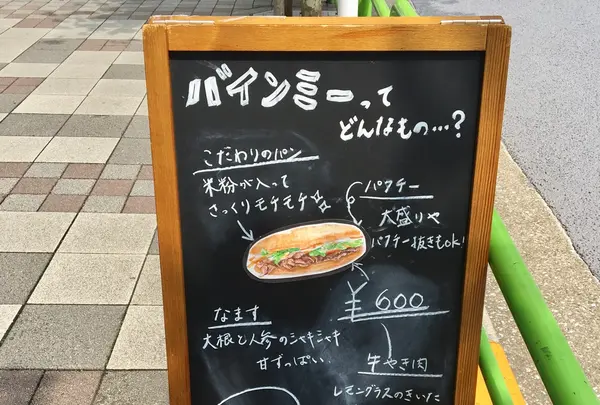 バインミーって
どんなもの…?
こだわりのパン
米粉が入って
さっくりモチモチ
パクチー
大盛りや
パクチー抜きもok!
¥600
なます
大根と人参のシャキシャキ
甘ずっぱい
牛やき肉
レモングラスのきいた